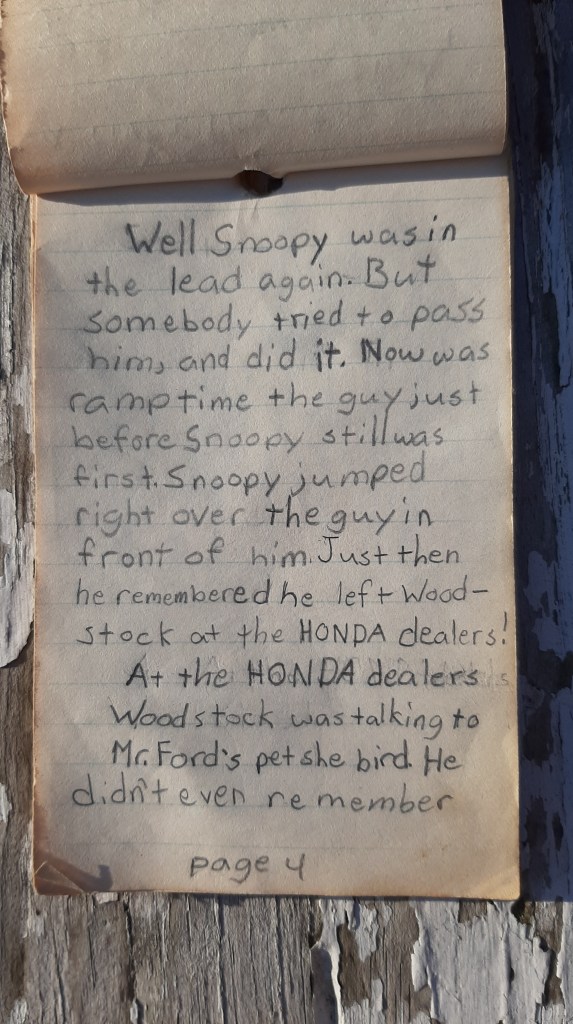 Well Snoopy was in
the lead again. But
somebody tried to pass
him, and did it. Now was
ramp time the guy just
before Snoopy still was
first. Snoopy jumped
right over the guy in
front of him. Just then
he remembered he left Wood-
stock at the HONDA dealers!
At the HONDA dealers
Woodstock was talking to
Mr. Ford's pet she bird. He
didn't even remember
page 4